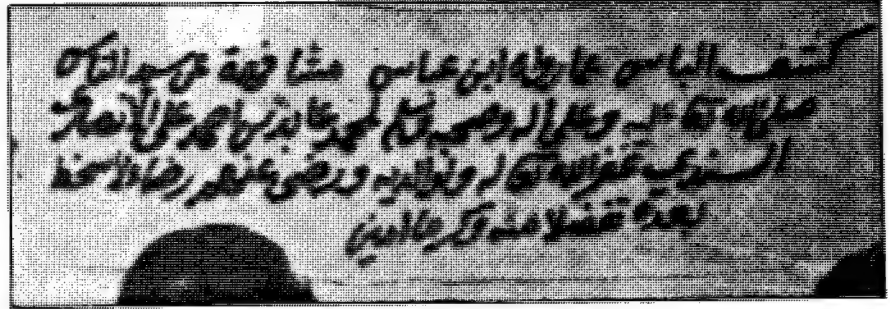 كشف الباس عما رواه ابن عباس مشافهة عن سيد الناس
صلى الله تعالى عليه وعلى اله وصحبه وسلم لمحمد عابد بن احمد على الأنصاري
السندي غفر الله تعالى له ولوالديه ورضي عنهم رضا لا سخط
بعده تفضلا منه وكرما امين